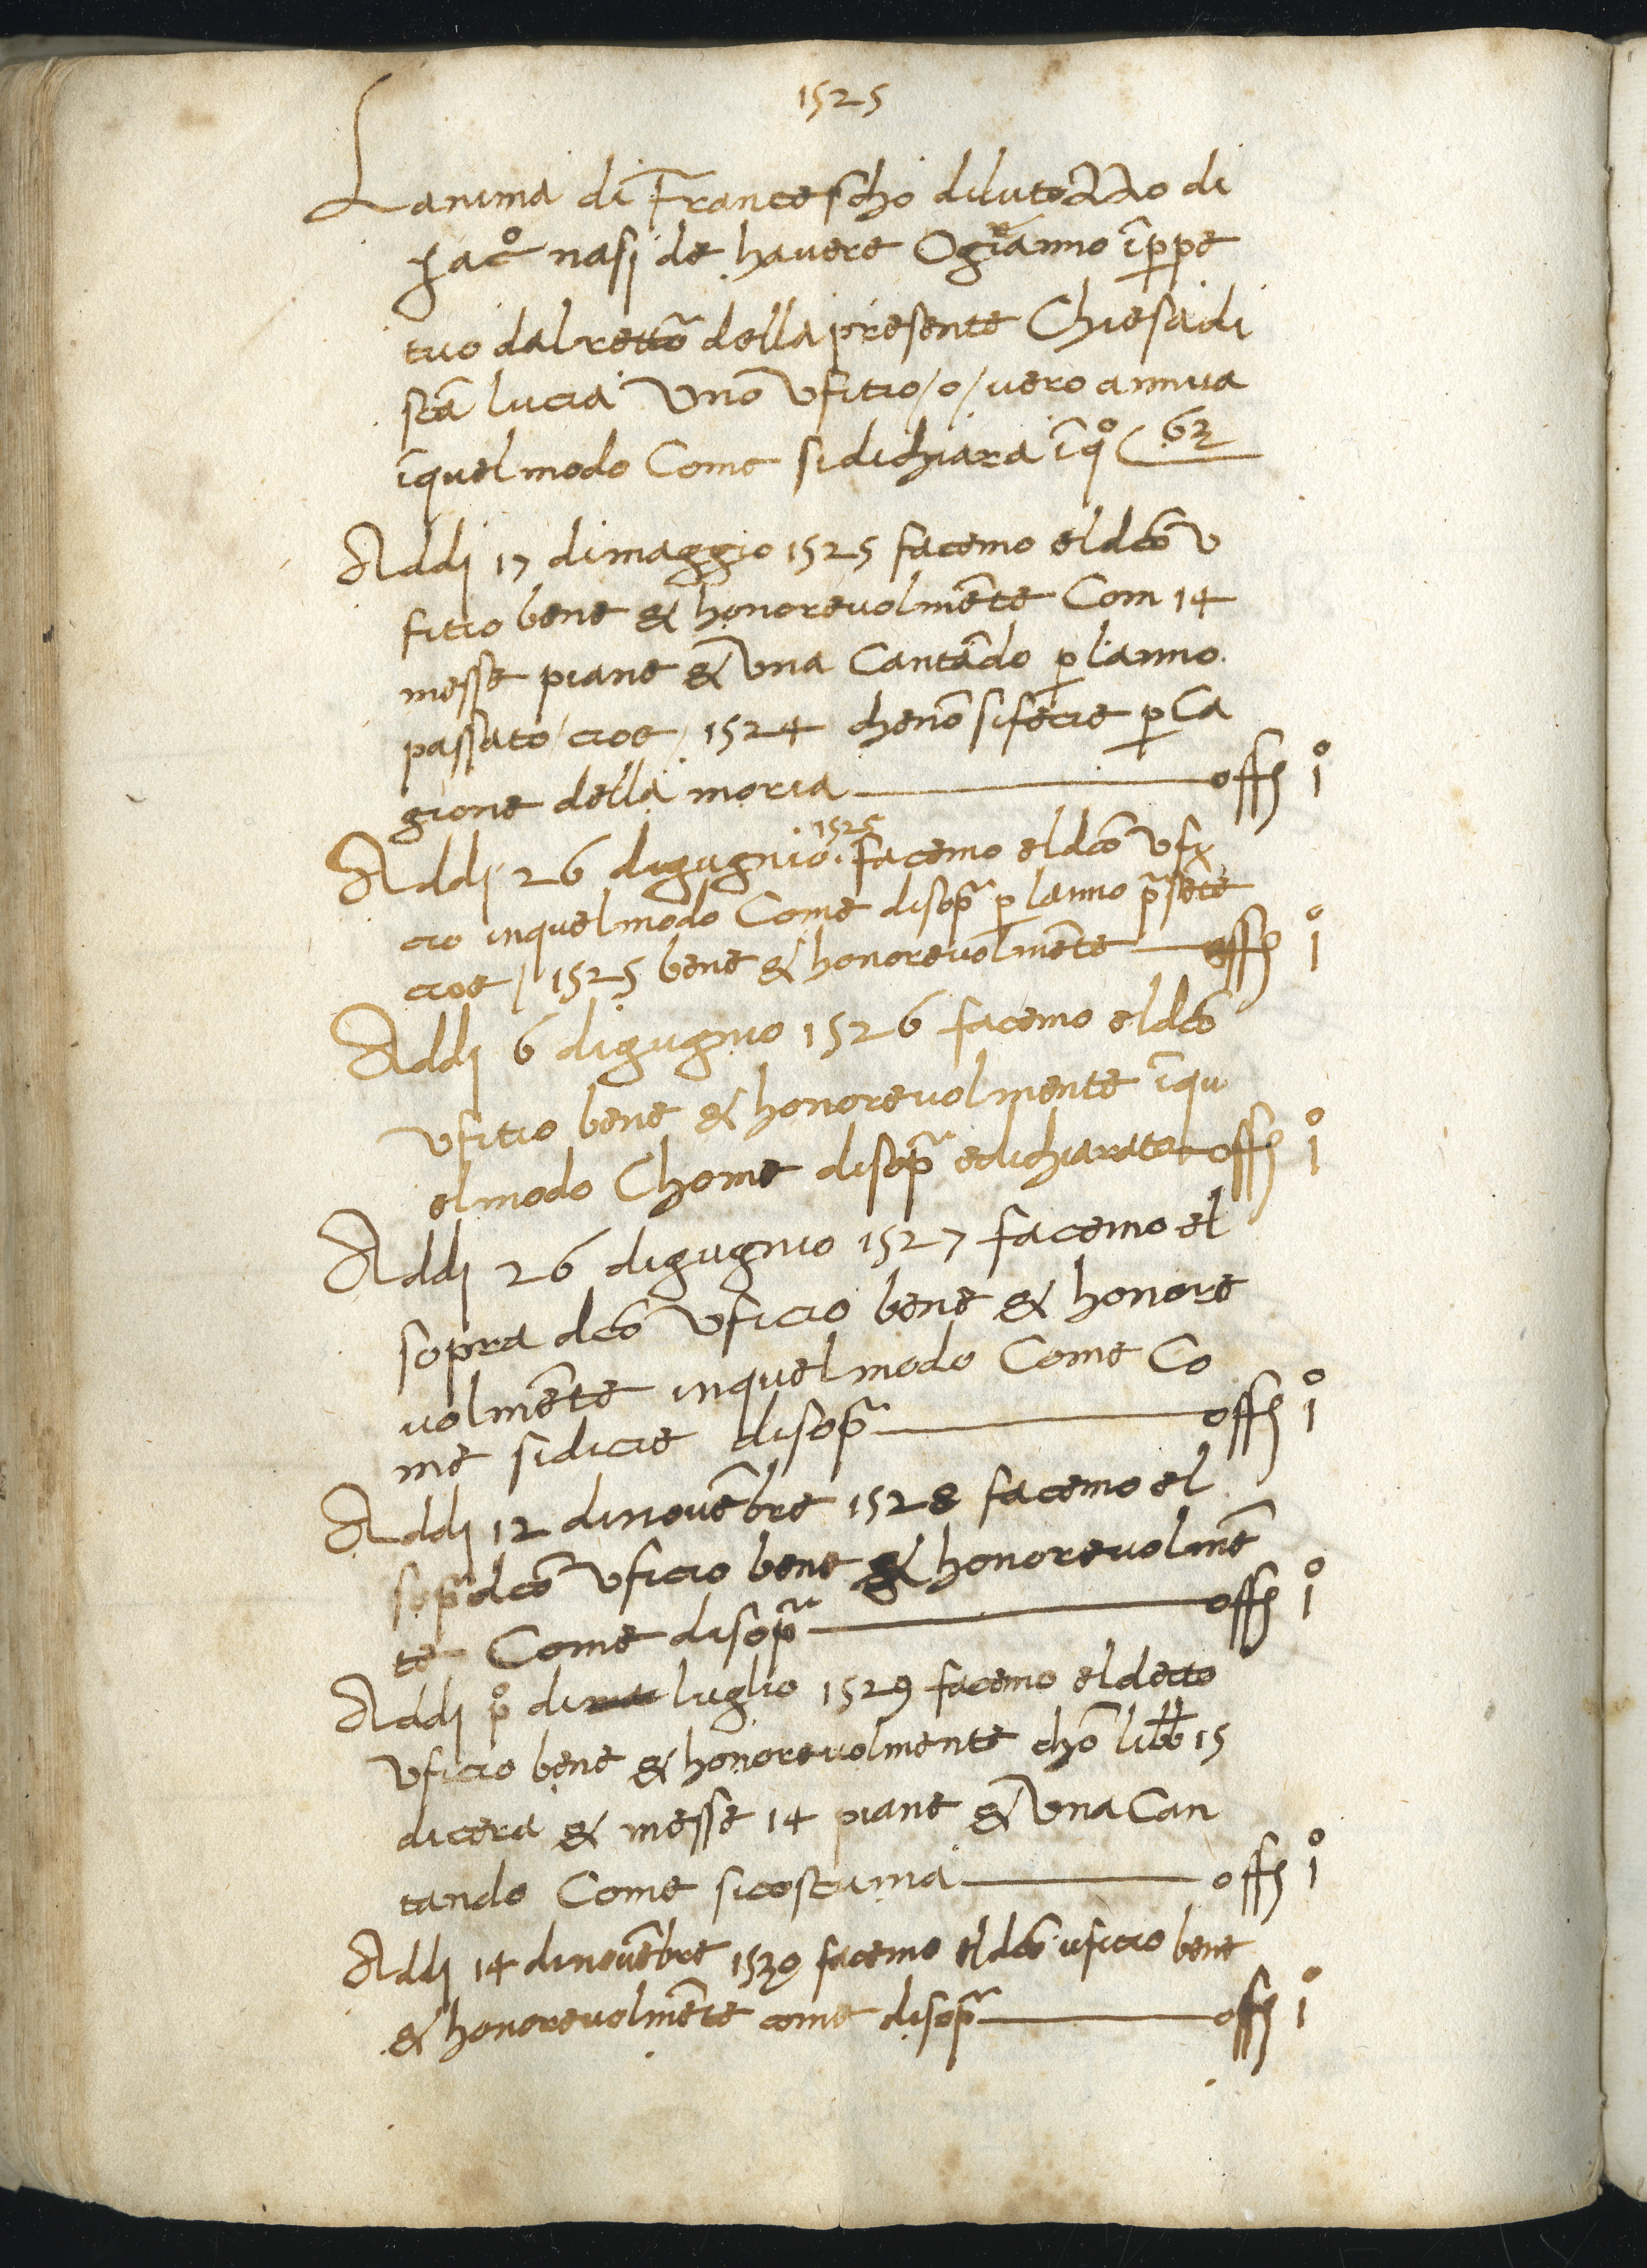 1525
Lanima di Francescho dilutozzo di
Jac° nasi de havere Ogni anno ī ꝑpe
tuo dal rettō della presente Chiesa di
scā lucia Uno Vfitio / o / vero annua
īquel modo Come si dichiara ī q° C 62
Addi 17 di maggio 1525 facemo el dcō v
fitio bene & honorevolmēte Com 14
messe piane & una Cantādo ꝑ lanno
passato / cioe / 1524 che nō si fecie ꝑ Ca
gione della moria — offj j°
Addi 26 digugnio 1525 facemo el dcō vfi
cio inquel modo Come disopª ꝑ lanno pªsēte
cioe / 1525 bene & honorevolmēte — offj j°
Addi 6 digugnio 1526 facemo el dcō
vfitio bene & honorevolmente ī qu
el modo Chome disopª e dichiarato — offj j°
Addi 26 digugnio 1527 facemo el
sopra dcō Vficio bene & honore
volmēte inquel modo Come Co
me si dicie disopª — offj j°
Addi 12 di novēbre 1528 facemo el
sopª dcō vficio bene & honorevolmē
te Come disopª — offj j°
Addi p° di luglio 1529 facemo el detto
Vficio bene & honorevolmente chō libb 15
dicera & messe 14 piane & una Can
tando Come si costuma — offj j°
Addi 14 di novēbre 1530 facemo el dcō uficio bene
& honorevolmēte come disopª — offj j°